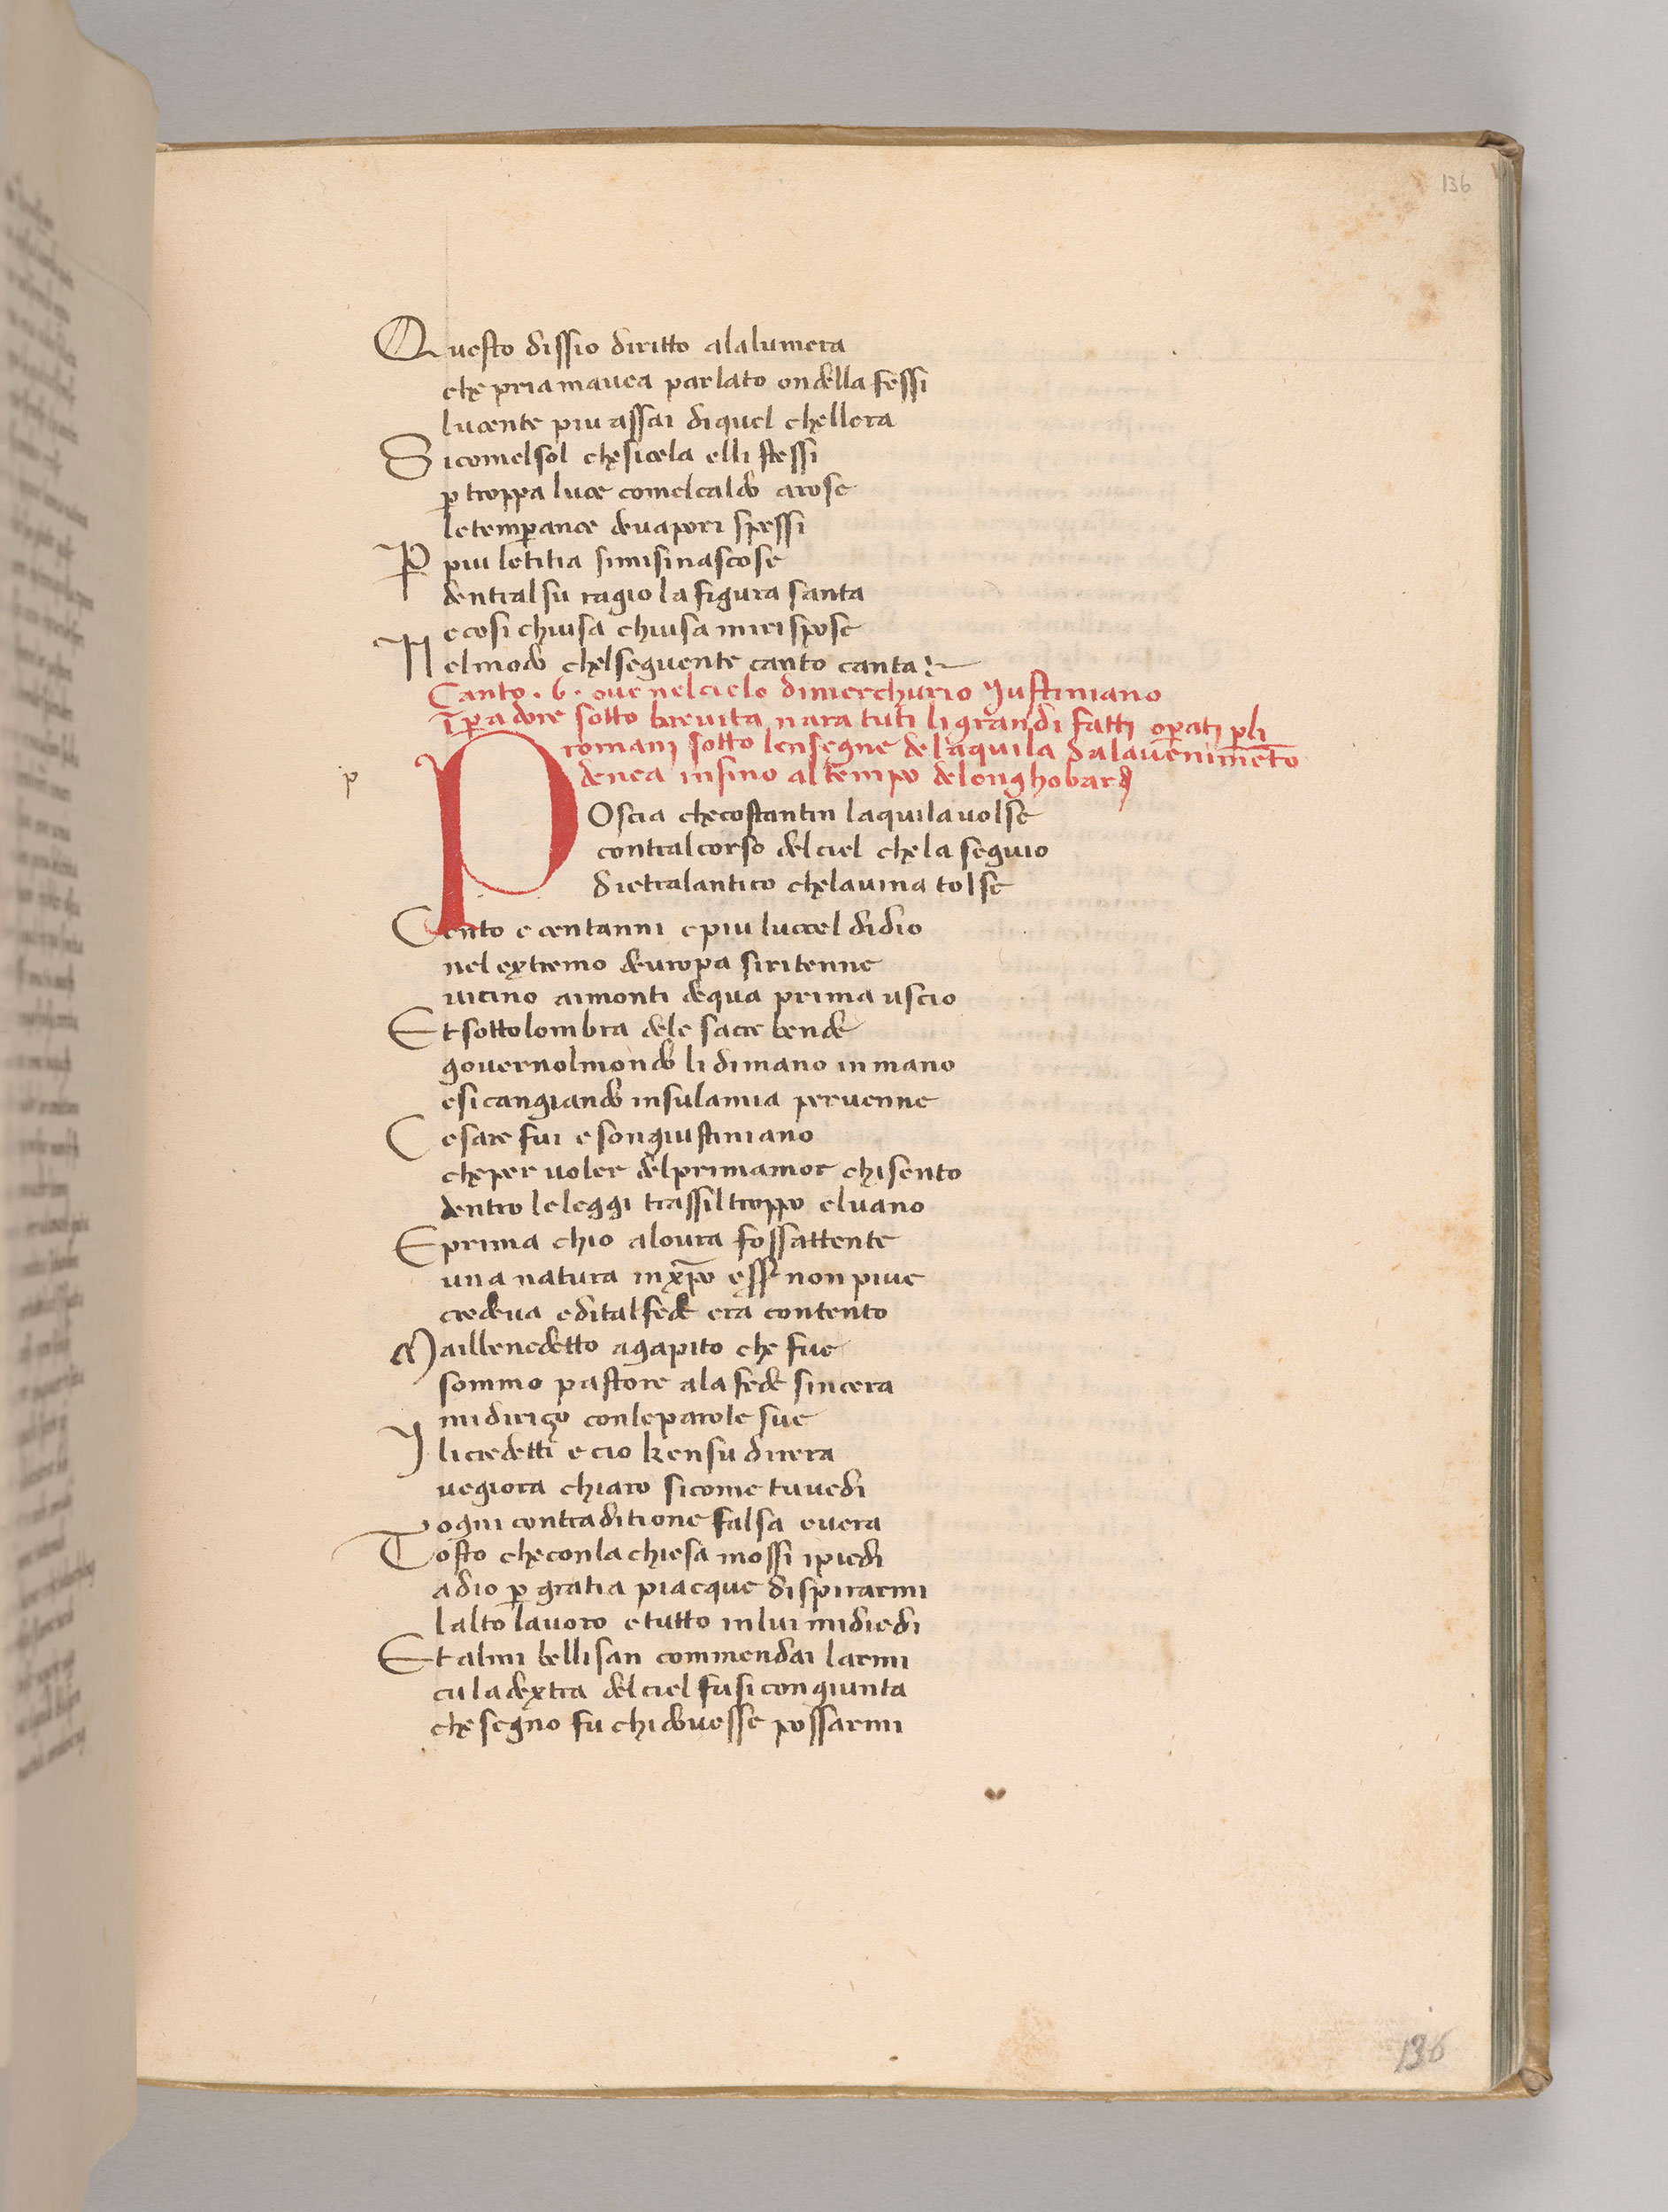 136
Questo dissio diritto alalumera
che pria mauea parlato ondella fessi
lucente piu assai diquel chellera
Sicomelsol chesicela elli stessi
p troppa luce comelcaldo arose
letemperance deuapori spessi
P piu letitia simisinascose
dentralsu ragio la figura santa
ecosi chiusa chiusa mirispose
Nelmodo chelseguente canto canta:~
Canto . 6 . oue nelcielo dimerchurio Justiniano
ĩpadore sotto breuita nara tuti li grandi fatti opati pli
romani sotto lensegne delaquila dalauenimẽto
denea insino altempo delonghobardj
p
POscia checostantin laquilauolse
contralcorso delciel chela seguio
dietralantico chelauina tolse
Cento e centanni epiu luccel didio
nel extremo deuropa siritenne
uicino aimonti dequa prima uscio
Et sottolombra dele sacre bende
gouernolmondo li dimano inmano
esicangiando insulamia peruenne
Cesare fui esongiustiniano
cheper uoler delprimamor chisento
dentro leleggi trassiltroppo eluano
Eprima chio aloura fossattente
una natura inxpo esser non piue
credeua editalfede era contento
Mailbenedetto agapito che fue
sommo pastore ala fede sincera
midirizo conleparole sue
Jlicredetti ecio kensu direra
uegiora chiaro sicome tuuedi
ogni contraditione falsa euera
Tosto checonla chiesa mossi ipiedi
adio p gratia piacque dispirarmi
lalto lauoro etutto inlui midiedi
Et almi bellisan commendai larmi
cu ladextra delciel fusi congiunta
chesegno fu chidouesse possarmi
136